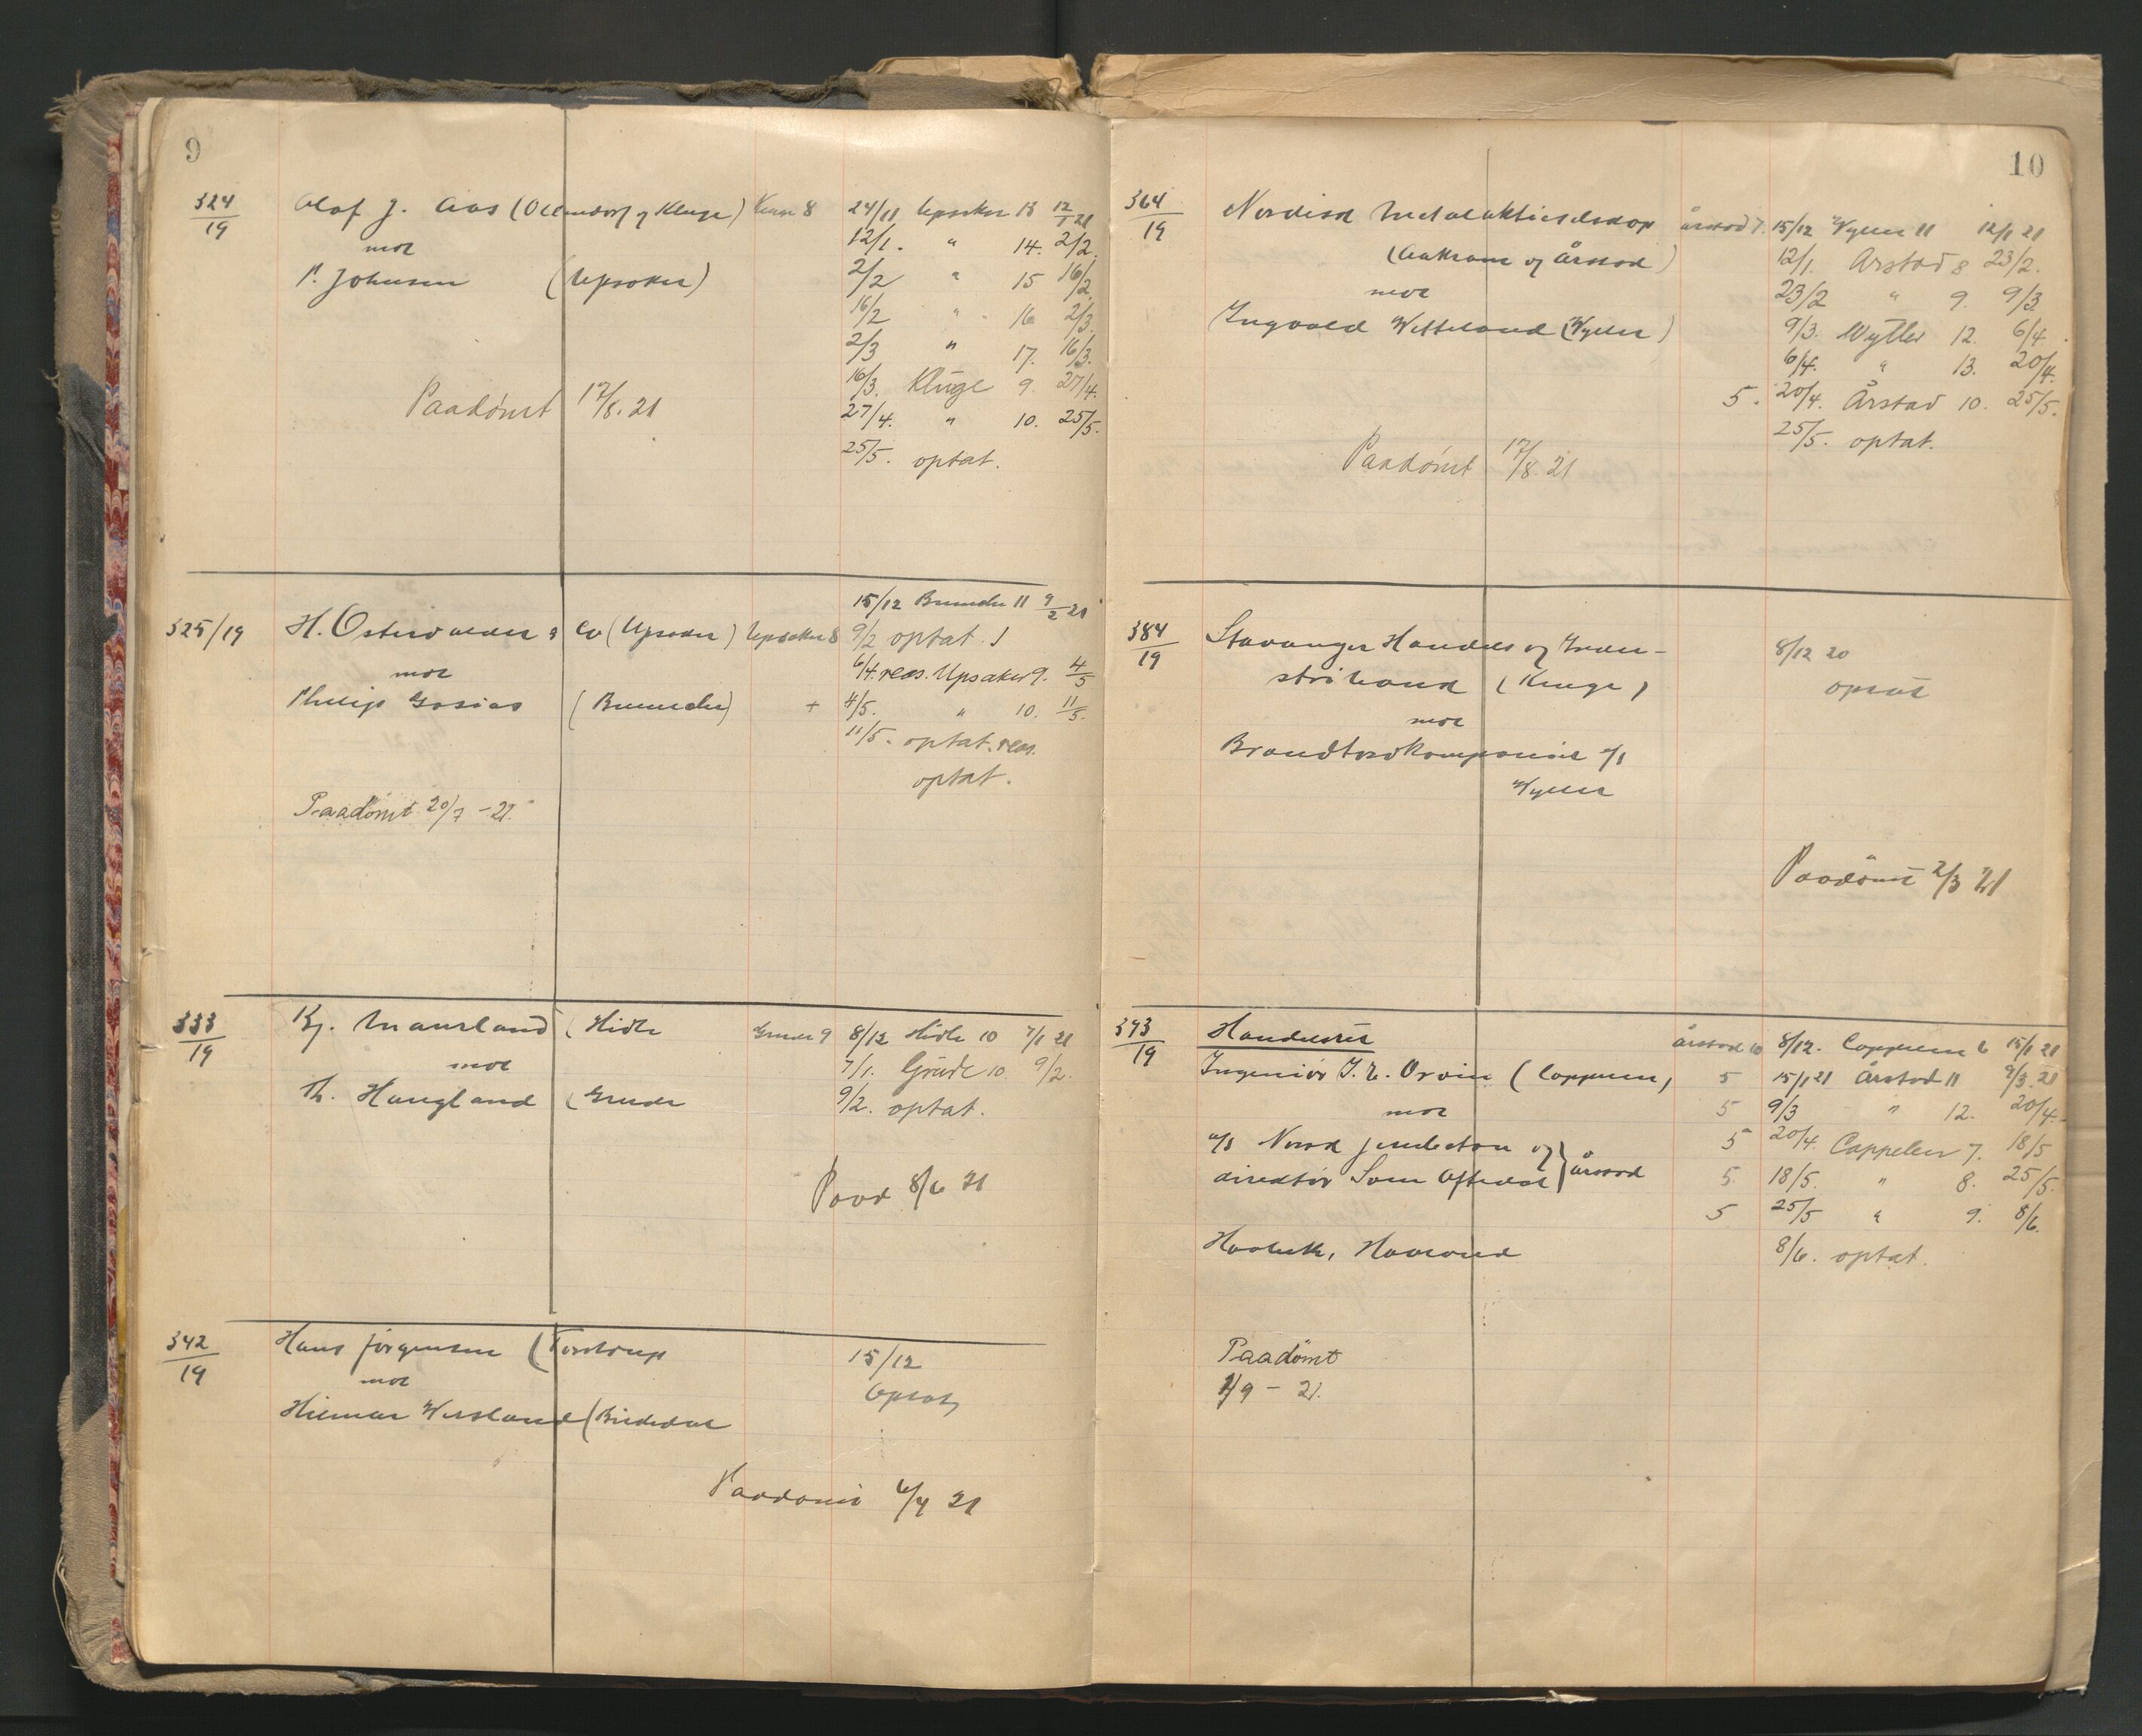 9
324/19 Olaf J. Aas (Ollendorf og Kluge) Kluge 8 24/11 Upsaker 13 12/1 21
mot 12/1. " 14. 2/2.
P. Johnsen (Upsaker) 2/2 " 15 16/2.
16/2 " 16 2/3.
2/3 " 17. 16/3.
16/3. Kluge 9. 27/4.
Paadømt 17/8. 21 27/4. " 10. 25/5.
25/5. optat.
325/19 H. Ostervalder & Co (Upsaker) Upsaker 8 15/12 11 9/2 21
9/2 optat.
mot 6/4. reas. Upsaker 9. 4/5
Philip + 4/5. " 10. 11/5.
11/5. optat. reas.
optat.
Paadømt 20/7 - 21.
333/19 Kj. Mauland (Hidle Grude 9 8/12 Hidle 10 7/1 21
mot 7/1. Grude 10 9/2.
Th. Haugland (Grude 9/2. optat.
Paad 8/6 21
342/19 Hans Jørgensen (Torstrup 15/12
mot Optat
Hilmar Versland (Birkedal
Paadømt 6/4 21
10
364/19 Nordisk Metalaktieselskap Årstad 7. 15/12 Wyller 11 12/1 21
(Aakrann og Årstad) 12/1. Årstad 8 23/2.
mot 23/2 " 9. 9/3
Ingvald (Wyller) 9/3. Wyller 12. 6/4.
6/4. " 13. 20/4.
5. 20/4. Årstad 10. 25/5.
25/5. optat.
Paadømt 17/8. 21
384/19 Stavanger Handels og Indu-
stribank (Kluge) 8/12 20
optat
mot
Brandtordkompaniet a/s
Wyller
Paadømt 2/3 21
393/19 Handelsret Årstad 10 8/12. Cappelen 6 15/1 21
Ingeniør (Cappelen) 5 15/1 21 Årstad 11 9/3. 21
mot 5 9/3 " 12. 20/4.
a/s Norsk og 5 20/4. Cappelen 7. 18/5
direktør Aftedal } Årstad 5 18/5. " 8. 25/5.
5 25/5 " 9. 8/6.
8/6. optat.
Paadømt
1/9 - 21.